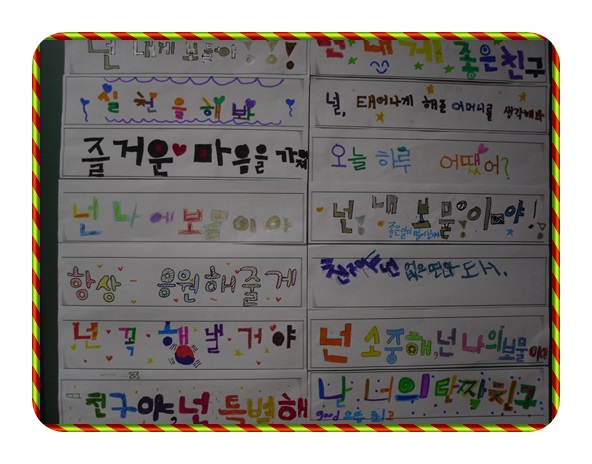 넌 내게 보물이야!!!
넌 내게 좋은 친구
실천을 해 봐
널, 태어나게 해준 어머니를 생각해봐
즐거운 마음을 가져
오늘 하루 어땠어?
넌 나에 보물이야
넌! 내 보물이야!
항상 응원해줄게
친구야 넌
넌 꼭 해낼 거야
넌 소중해, 넌 나의 보물이야
친구야, 넌 특별해
난 너의 단짝친구
good